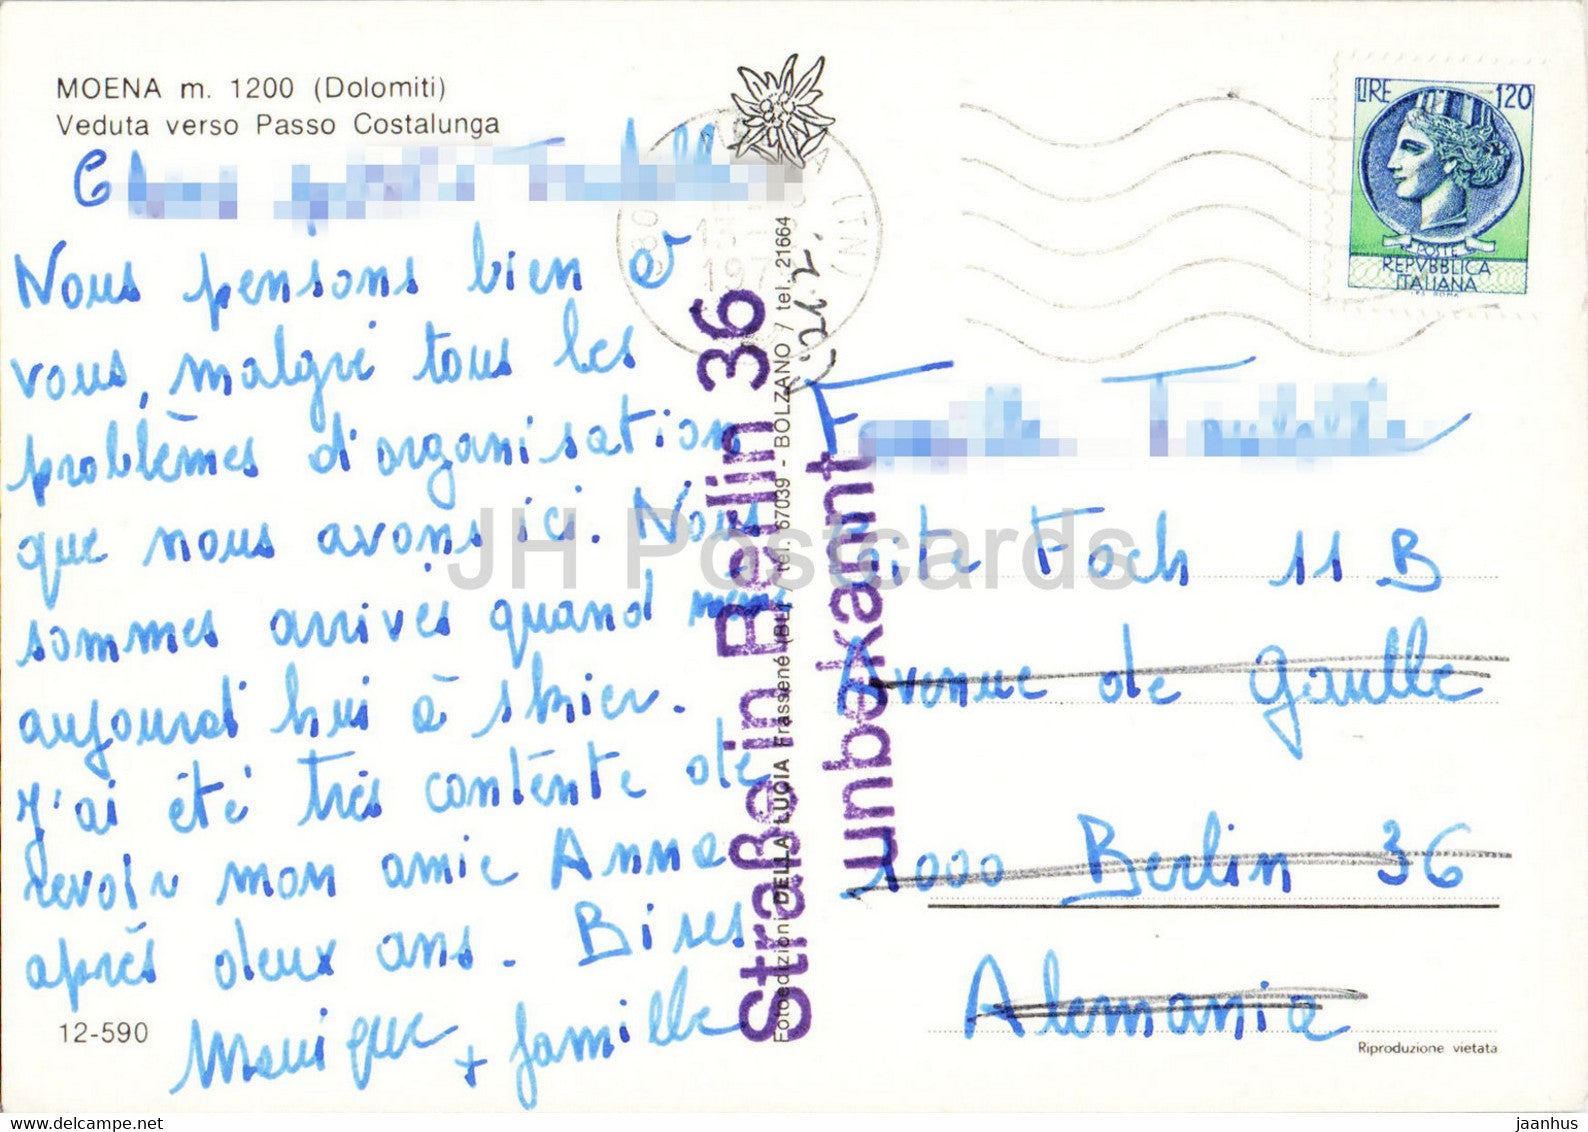 MOENA m. 1200 (Dolomiti)
Veduta verso Passo Costalunga
Nous pensons bien à
vous, malgré tous les
problèmes d'organisation
que nous avons ici. Nous
sommes arrivés quand même
aujourd'hui à skier.
J'ai été très contente de
revoir mon amie Anne
après deux ans. Bises
Monique + famille
12-590
Straße in Berlin 36
unbekannt
Fotoedizioni DELLA LUCIA Frassené (BL) / tel. 67039 - BOLZANO / tel. 21664
LIRE 120
POSTE
REPVBBLICA
ITALIANA
I.P.S. ROMA
Cité Foch 11 B
Avenue de Gaulle
1000 Berlin 36
Alemania
Riproduzione vietata
JH Postcards
www.delcampe.net
jaanhus